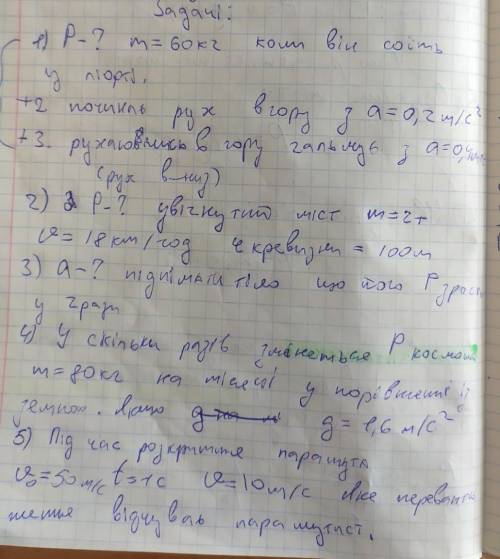 Задачі:
1) P-? m=60кг коли він соїть
у ліфті.
+2 починль рух вгору з a=0,2м/с²
+3. рухаювшись в гору гальмує з a=0,4м/с²
(рух в-низ)
2) P-? увігнутий міст m=2т
v=18км/год кревизни = 100м
3) a-? піднімати тіло що його P зрасла
у 2рази
4) У скільки разів змінеться P космон
m=80кг на місяці у порівненні із
земною. Якщо g = 1,6м/с²
5) Під час розкриття парашута
v₀=50м/с t=1с v=10м/с яке переванта
ження відчував парашутист.